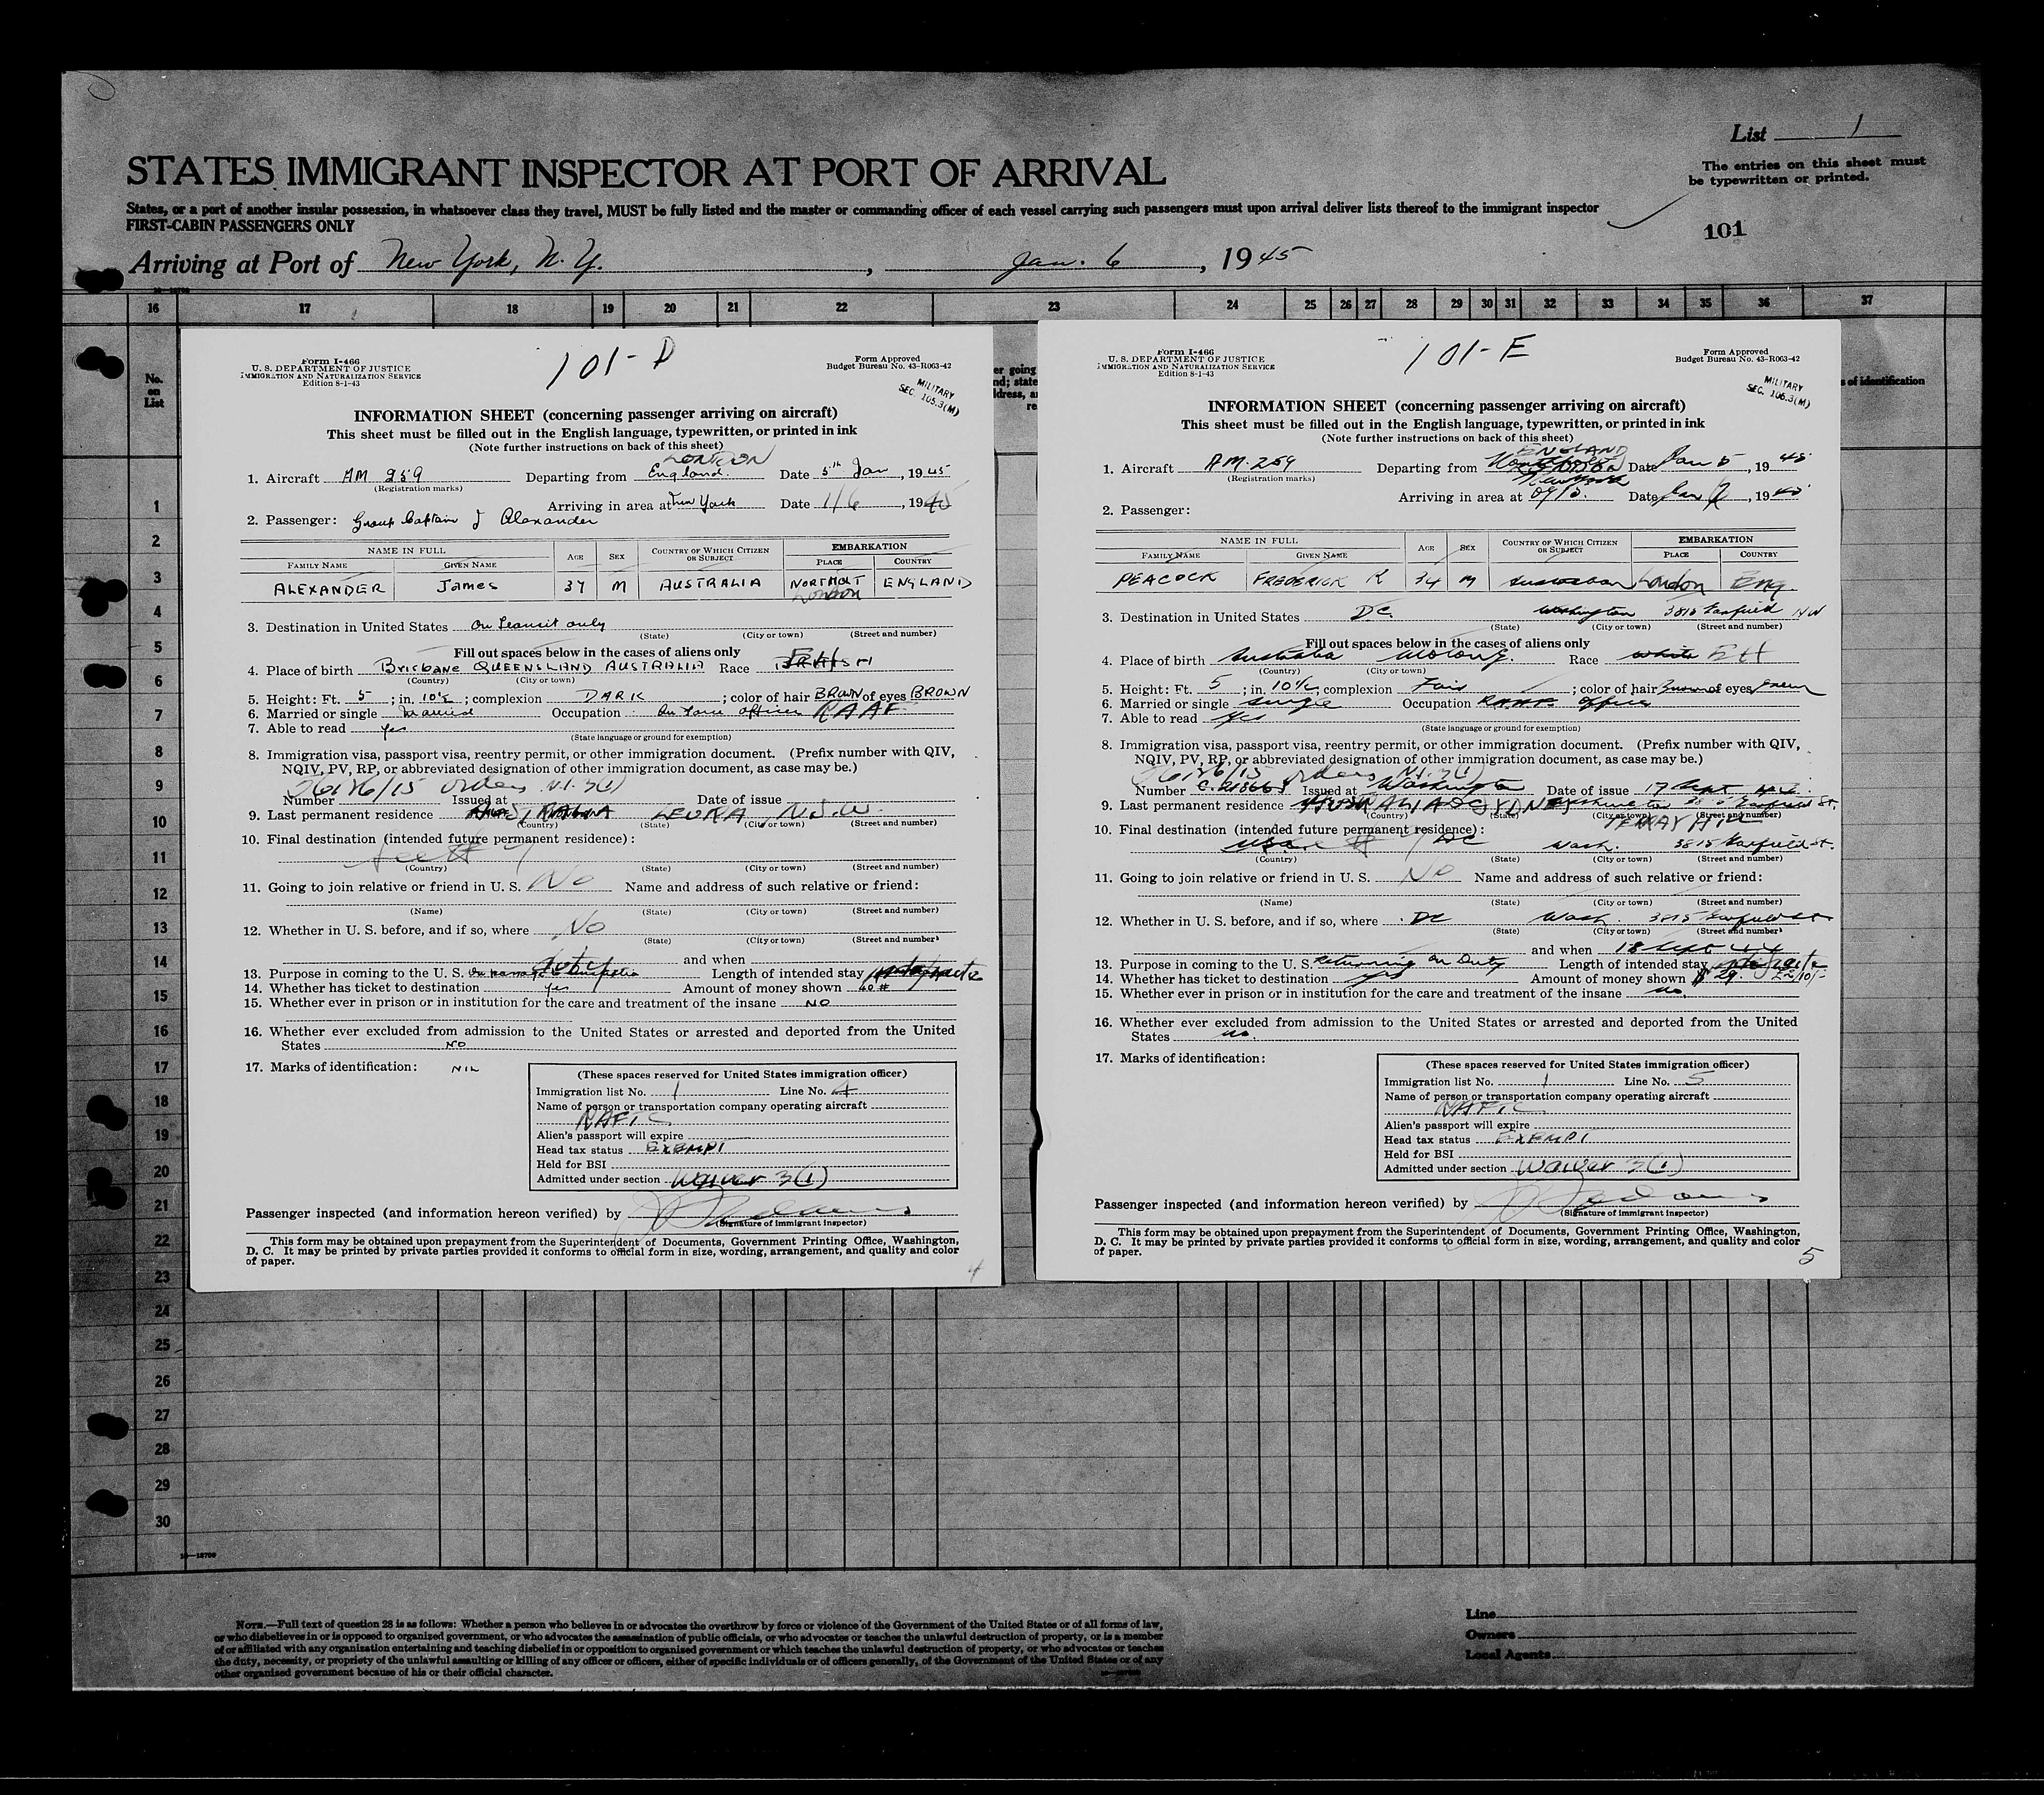 List 1
STATES IMMIGRANT INSPECTOR AT PORT OF ARRIVAL
The entries on this sheet must
be typewritten or printed.
States, or a port of another insular possession, in whatsoever class they travel, MUST be fully listed and the master or commanding officer of each vessel carrying such passengers must upon arrival deliver lists thereof to the immigrant inspector
FIRST-CABIN PASSENGERS ONLY
101
Arriving at Port of New York, N. Y. , Jan. 6 , 1945
16 17 18 19 20 21 22 23 24 25 26 27 28 29 30 31 32 33 34 35 36 37
No.
on
List
s of identification
1
2
3
4
5
6
7
8
9
10
11
12
13
14
15
16
17
18
19
20
21
22
23
24
25
26
27
28
29
30
Form I-466
U. S. DEPARTMENT OF JUSTICE
IMMIGRATION AND NATURALIZATION SERVICE
Edition 8-1-43
101-D
Form Approved
Budget Bureau No. 43-R063-42
MILITARY
SEC. 105.3(M)
INFORMATION SHEET (concerning passenger arriving on aircraft)
This sheet must be filled out in the English language, typewritten, or printed in ink
(Note further instructions on back of this sheet)
LONDON
1. Aircraft AM 259 Departing from England. Date 5th Jan, 1945
(Registration marks)
Arriving in area at New York Date 1/6, 1945
2. Passenger: Group Captain J Alexander
NAME IN FULL AGE SEX COUNTRY OF WHICH CITIZEN OR SUBJECT EMBARKATION
FAMILY NAME GIVEN NAME PLACE COUNTRY
ALEXANDER James 37 M AUSTRALIA NORTHOLT ENGLAND
London
3. Destination in United States On Transit only
(State) (City or town) (Street and number)
Fill out spaces below in the cases of aliens only
4. Place of birth Brisbane QUEENSLAND AUSTRALIA Race
(Country) (City or town)
5. Height: Ft. 5 ; in. 10½ ; complexion DARK ; color of hair BROWN of eyes BROWN
6. Married or single Married Occupation Air Force officer RAAF
7. Able to read yes
(State language or ground for exemption)
8. Immigration visa, passport visa, reentry permit, or other immigration document. (Prefix number with QIV,
NQIV, PV, RP, or abbreviated designation of other immigration document, as case may be.)
orders
Number Issued at Date of issue
9. Last permanent residence AUSTRALIA LEURA N.S.W.
(Country) (State) (City or town) (Street and number)
10. Final destination (intended future permanent residence):
(Country) (State) (City or town) (Street and number)
11. Going to join relative or friend in U. S. No Name and address of such relative or friend:
(Name) (State) (City or town) (Street and number)
12. Whether in U. S. before, and if so, where No
(State) (City or town) (Street and number)
and when
13. Purpose in coming to the U. S. Length of intended stay
14. Whether has ticket to destination yes Amount of money shown
15. Whether ever in prison or in institution for the care and treatment of the insane NO
16. Whether ever excluded from admission to the United States or arrested and deported from the United
States NO
17. Marks of identification: NIL
(These spaces reserved for United States immigration officer)
Immigration list No. 1 Line No. 4
Name of person or transportation company operating aircraft
Alien's passport will expire
Head tax status EXEMPT
Held for BSI
Admitted under section Waiver 3(1)
Passenger inspected (and information hereon verified) by
(Signature of immigrant inspector)
This form may be obtained upon prepayment from the Superintendent of Documents, Government Printing Office, Washington,
D. C. It may be printed by private parties provided it conforms to official form in size, wording, arrangement, and quality and color
of paper.
4
Form I-466
U. S. DEPARTMENT OF JUSTICE
IMMIGRATION AND NATURALIZATION SERVICE
Edition 8-1-43
101-E
Form Approved
Budget Bureau No. 43-R063-42
MILITARY
SEC. 105.3(M)
INFORMATION SHEET (concerning passenger arriving on aircraft)
This sheet must be filled out in the English language, typewritten, or printed in ink
(Note further instructions on back of this sheet)
ENGLAND
1. Aircraft AM.259 Departing from Date Jan 5, 1945
(Registration marks)
New York
Arriving in area at Date Jan, 1945
2. Passenger:
NAME IN FULL AGE SEX COUNTRY OF WHICH CITIZEN OR SUBJECT EMBARKATION
FAMILY NAME GIVEN NAME PLACE COUNTRY
PEACOCK FREDERICK R 34 M Australian London Eng.
3. Destination in United States D.C. Washington 3815 Garfield NW
(State) (City or town) (Street and number)
Fill out spaces below in the cases of aliens only
4. Place of birth Australia Molong. Race White
(Country) (City or town)
5. Height: Ft. 5 ; in. 10½ ; complexion Fair ; color of hair Brown of eyes Green
6. Married or single Single Occupation R.A.A.F. Officer
7. Able to read Yes
(State language or ground for exemption)
8. Immigration visa, passport visa, reentry permit, or other immigration document. (Prefix number with QIV,
NQIV, PV, RP, or abbreviated designation of other immigration document, as case may be.)
orders
Number Issued at Washington Date of issue 17 Sept
9. Last permanent residence
(Country) (State) (City or town) (Street and number)
10. Final destination (intended future permanent residence):
DC Wash. 3815 Garfield St.
(Country) (State) (City or town) (Street and number)
11. Going to join relative or friend in U. S. No Name and address of such relative or friend:
(Name) (State) (City or town) (Street and number)
12. Whether in U. S. before, and if so, where DC Wash. 3815 Garfield St
(State) (City or town) (Street and number)
and when 18 Sept 44
13. Purpose in coming to the U. S. Returning on Duty Length of intended stay
14. Whether has ticket to destination yes Amount of money shown
15. Whether ever in prison or in institution for the care and treatment of the insane no.
16. Whether ever excluded from admission to the United States or arrested and deported from the United
States no.
17. Marks of identification:
(These spaces reserved for United States immigration officer)
Immigration list No. 1 Line No. 5
Name of person or transportation company operating aircraft
Alien's passport will expire
Head tax status EXEMPT
Held for BSI
Admitted under section Waiver 3(1)
Passenger inspected (and information hereon verified) by
(Signature of immigrant inspector)
This form may be obtained upon prepayment from the Superintendent of Documents, Government Printing Office, Washington,
D. C. It may be printed by private parties provided it conforms to official form in size, wording, arrangement, and quality and color
of paper.
5
NOTE.—Full text of question 28 is as follows: Whether a person who believes in or advocates the overthrow by force or violence of the Government of the United States or of all forms of law,
or who disbelieves in or is opposed to organized government, or who advocates the assassination of public officials, or who advocates or teaches the unlawful destruction of property, or is a member
of or affiliated with any organization entertaining and teaching disbelief in or opposition to organized government or which teaches the unlawful destruction of property, or who advocates or teaches
the duty, necessity, or propriety of the unlawful assaulting or killing of any officer or officers, either of specific individuals or of officers generally, of the Government of the United States or of any
other organized government because of his or their official character.
Line
Owners
Local Agents